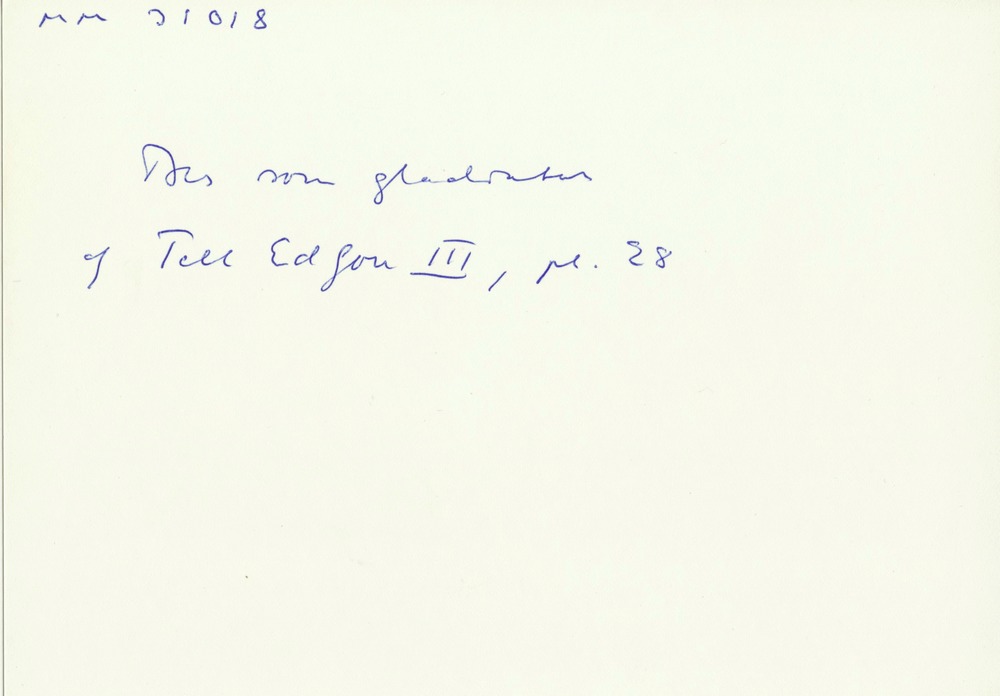 MM 31018
Bes som gladiator
cf Tell Edfou III, pl. 28